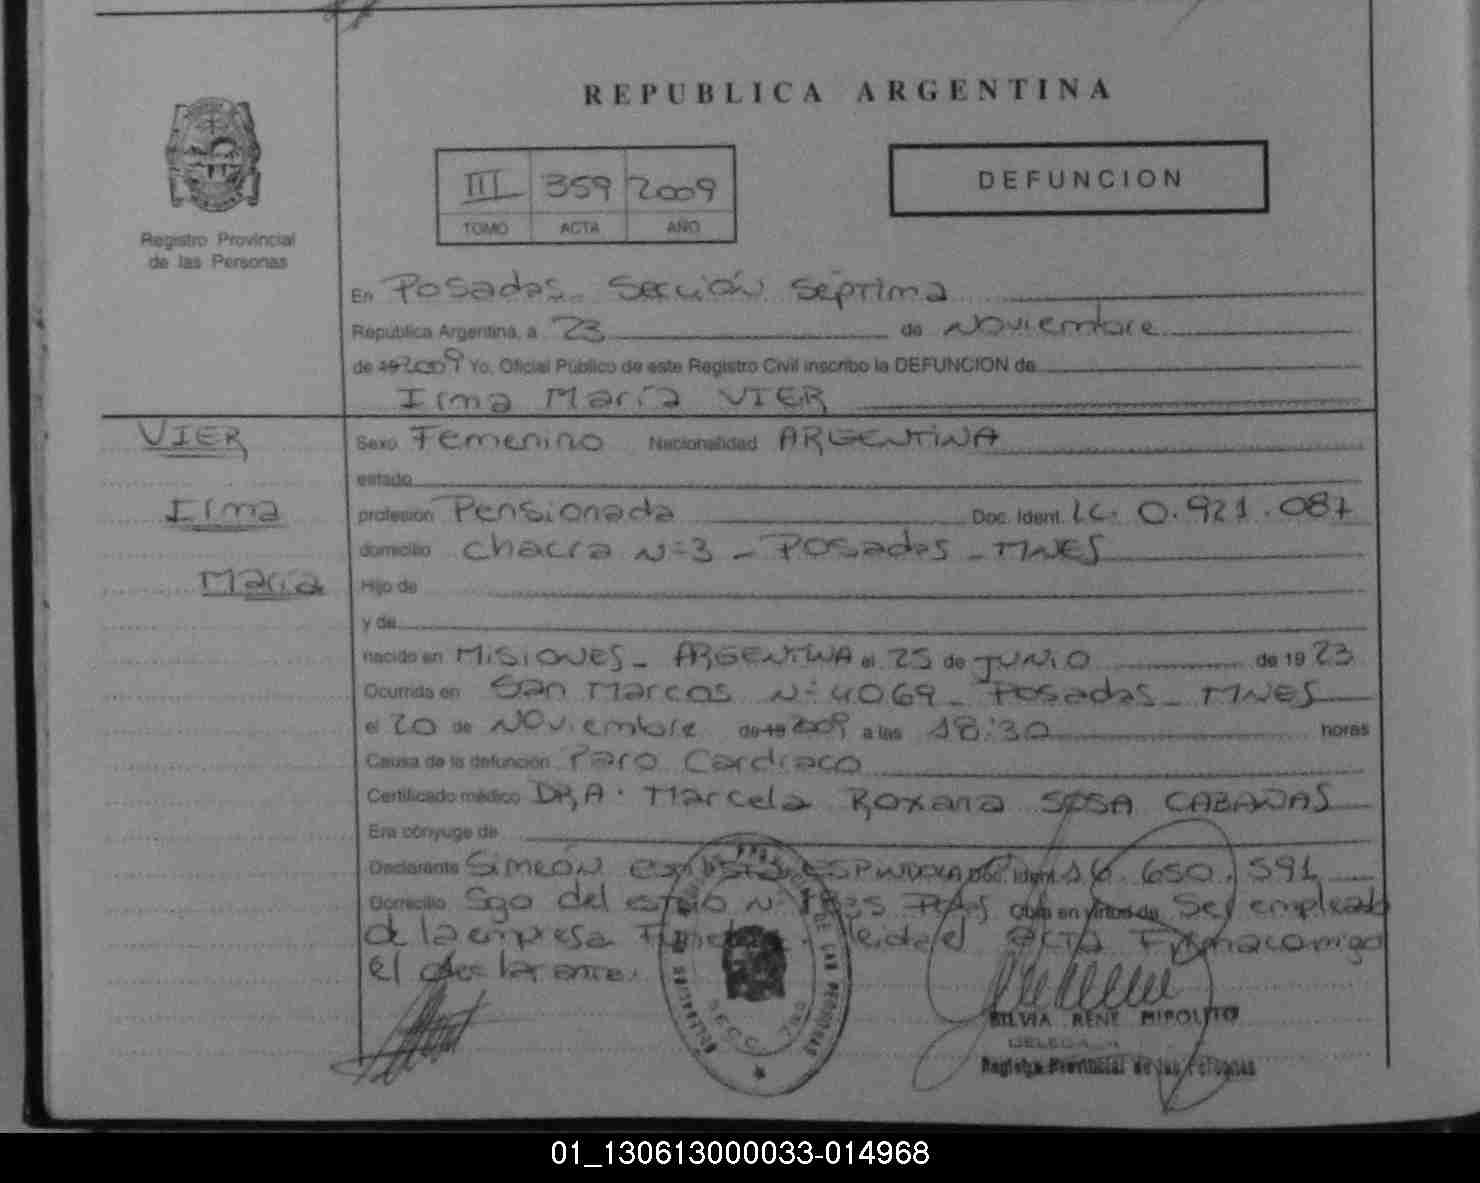 REPUBLICA ARGENTINA
III 359 2009
TOMO ACTA AÑO
DEFUNCION
Registro Provincial
de las Personas
En Posadas. Sección séptima
República Argentina, a 23 de Noviembre
de 19 2009 Yo, Oficial Público de este Registro Civil inscribo la DEFUNCION de
Irma María VIER
VIER
Irma
María
Sexo Femenino Nacionalidad ARGENTINA
estado
profesión Pensionada Doc. Ident. LC. 0.921.087
domicilio chacra N=3 - Posadas - MNES
Hijo de
y de
nacido en MISIONES - ARGENTINA el 25 de JUNIO de 19 23
Ocurrida en San Marcos N= 4069 - Posadas - MNES
el 20 de Noviembre de 19 2009 a las 18:30 horas
Causa de la defunción Paro Cardiaco
Certificado médico DRA. Marcela Roxana SOSA CABAÑAS
Era cónyuge de
Declarante Simeón ESPINDOLA Doc. Ident. 16.650.591
Domicilio Sgo del estero N= Pdas Obra en virtud de Ser empleado
de la empresa leida el ACTA Firma conmigo
el declarante.
SECC. 7MA
SILVIA RENE HIPOLITO
DELEGADA
Registro Provincial de las Personas
01_130613000033-014968